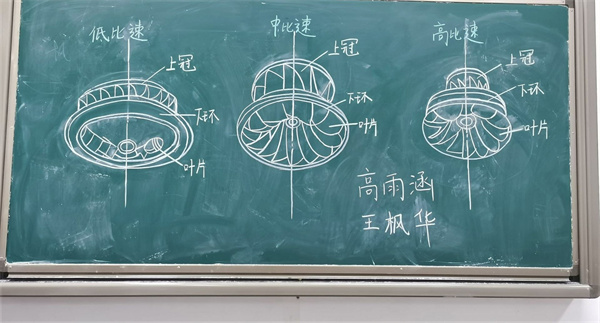 低比速
上冠
下环
叶片
中比速
上冠
下环
叶片
高比速
上冠
下环
叶片
高雨涵
王枫华